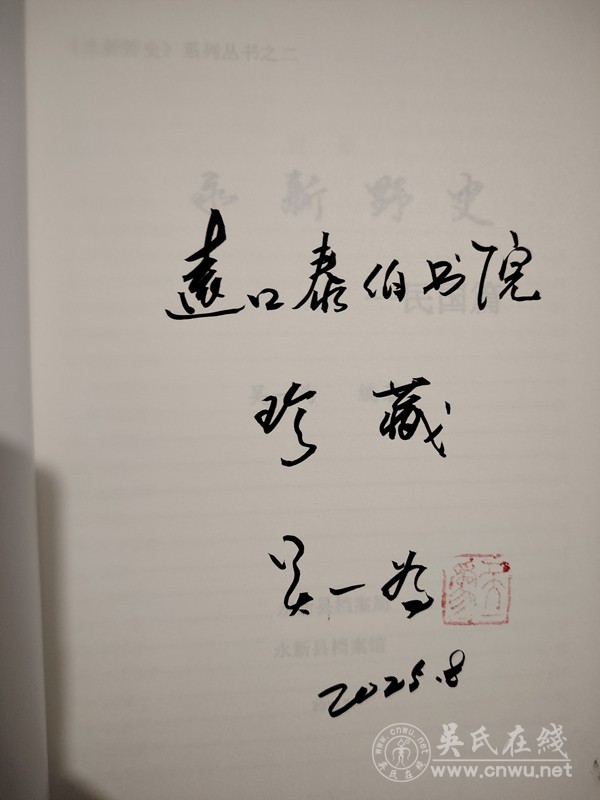 《永新野史》系列丛书之二
永新野史
遠口泰伯书院
民国篇
珍藏
吴一为
永新县档案馆
2025.8
吴氏在线
www.cnwu.net